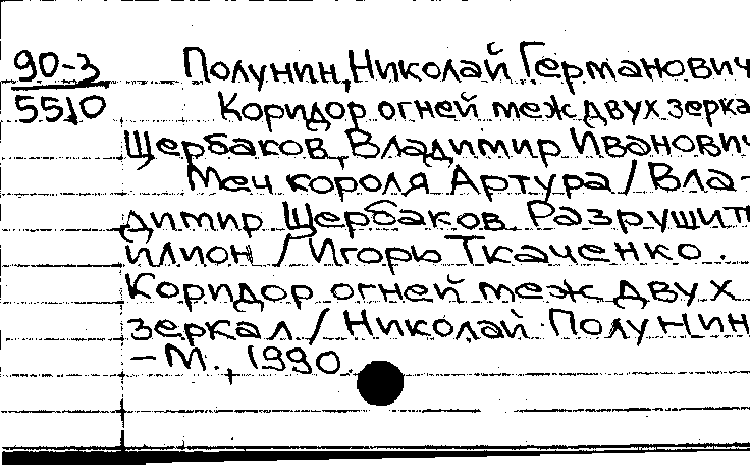 90-3 Полунин, Николай Германович
5510 Коридор огней меж двух зерка
Щербаков, Владимир Иванович
Меч короля Артура / Вла-
димир Щербаков. Разрушит
илион / Игорь Ткаченко.
Коридор огней меж двух
зеркал / Николай Полунин
– М., 1990.